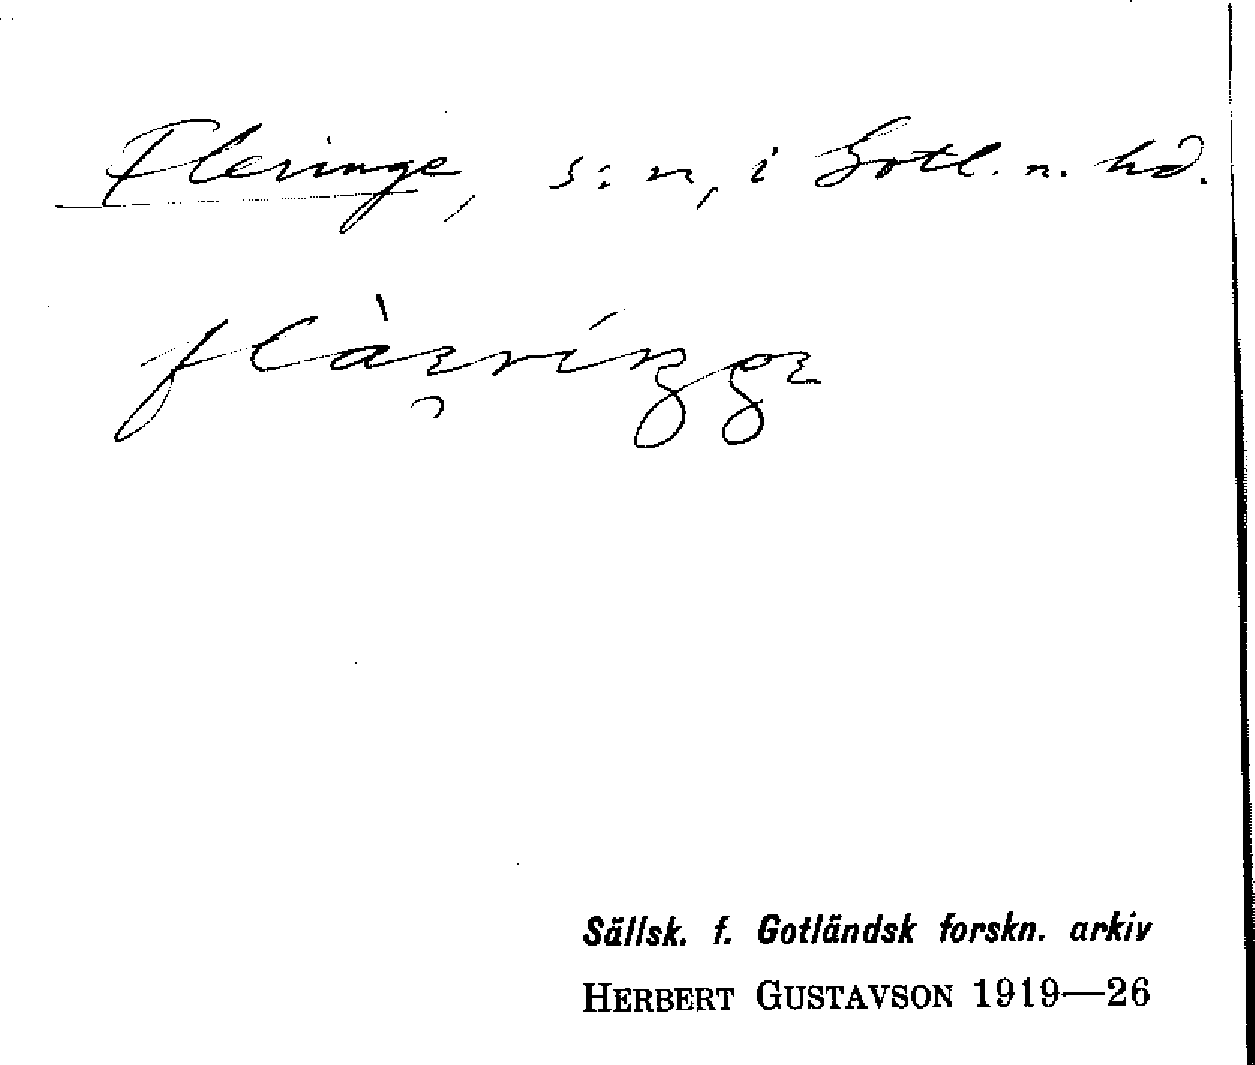 Fleringe, s:n, i Gotl. n. hd.
Sällsk. f. Gotländsk forskn. arkiv
HERBERT GUSTAVSON 1919—26